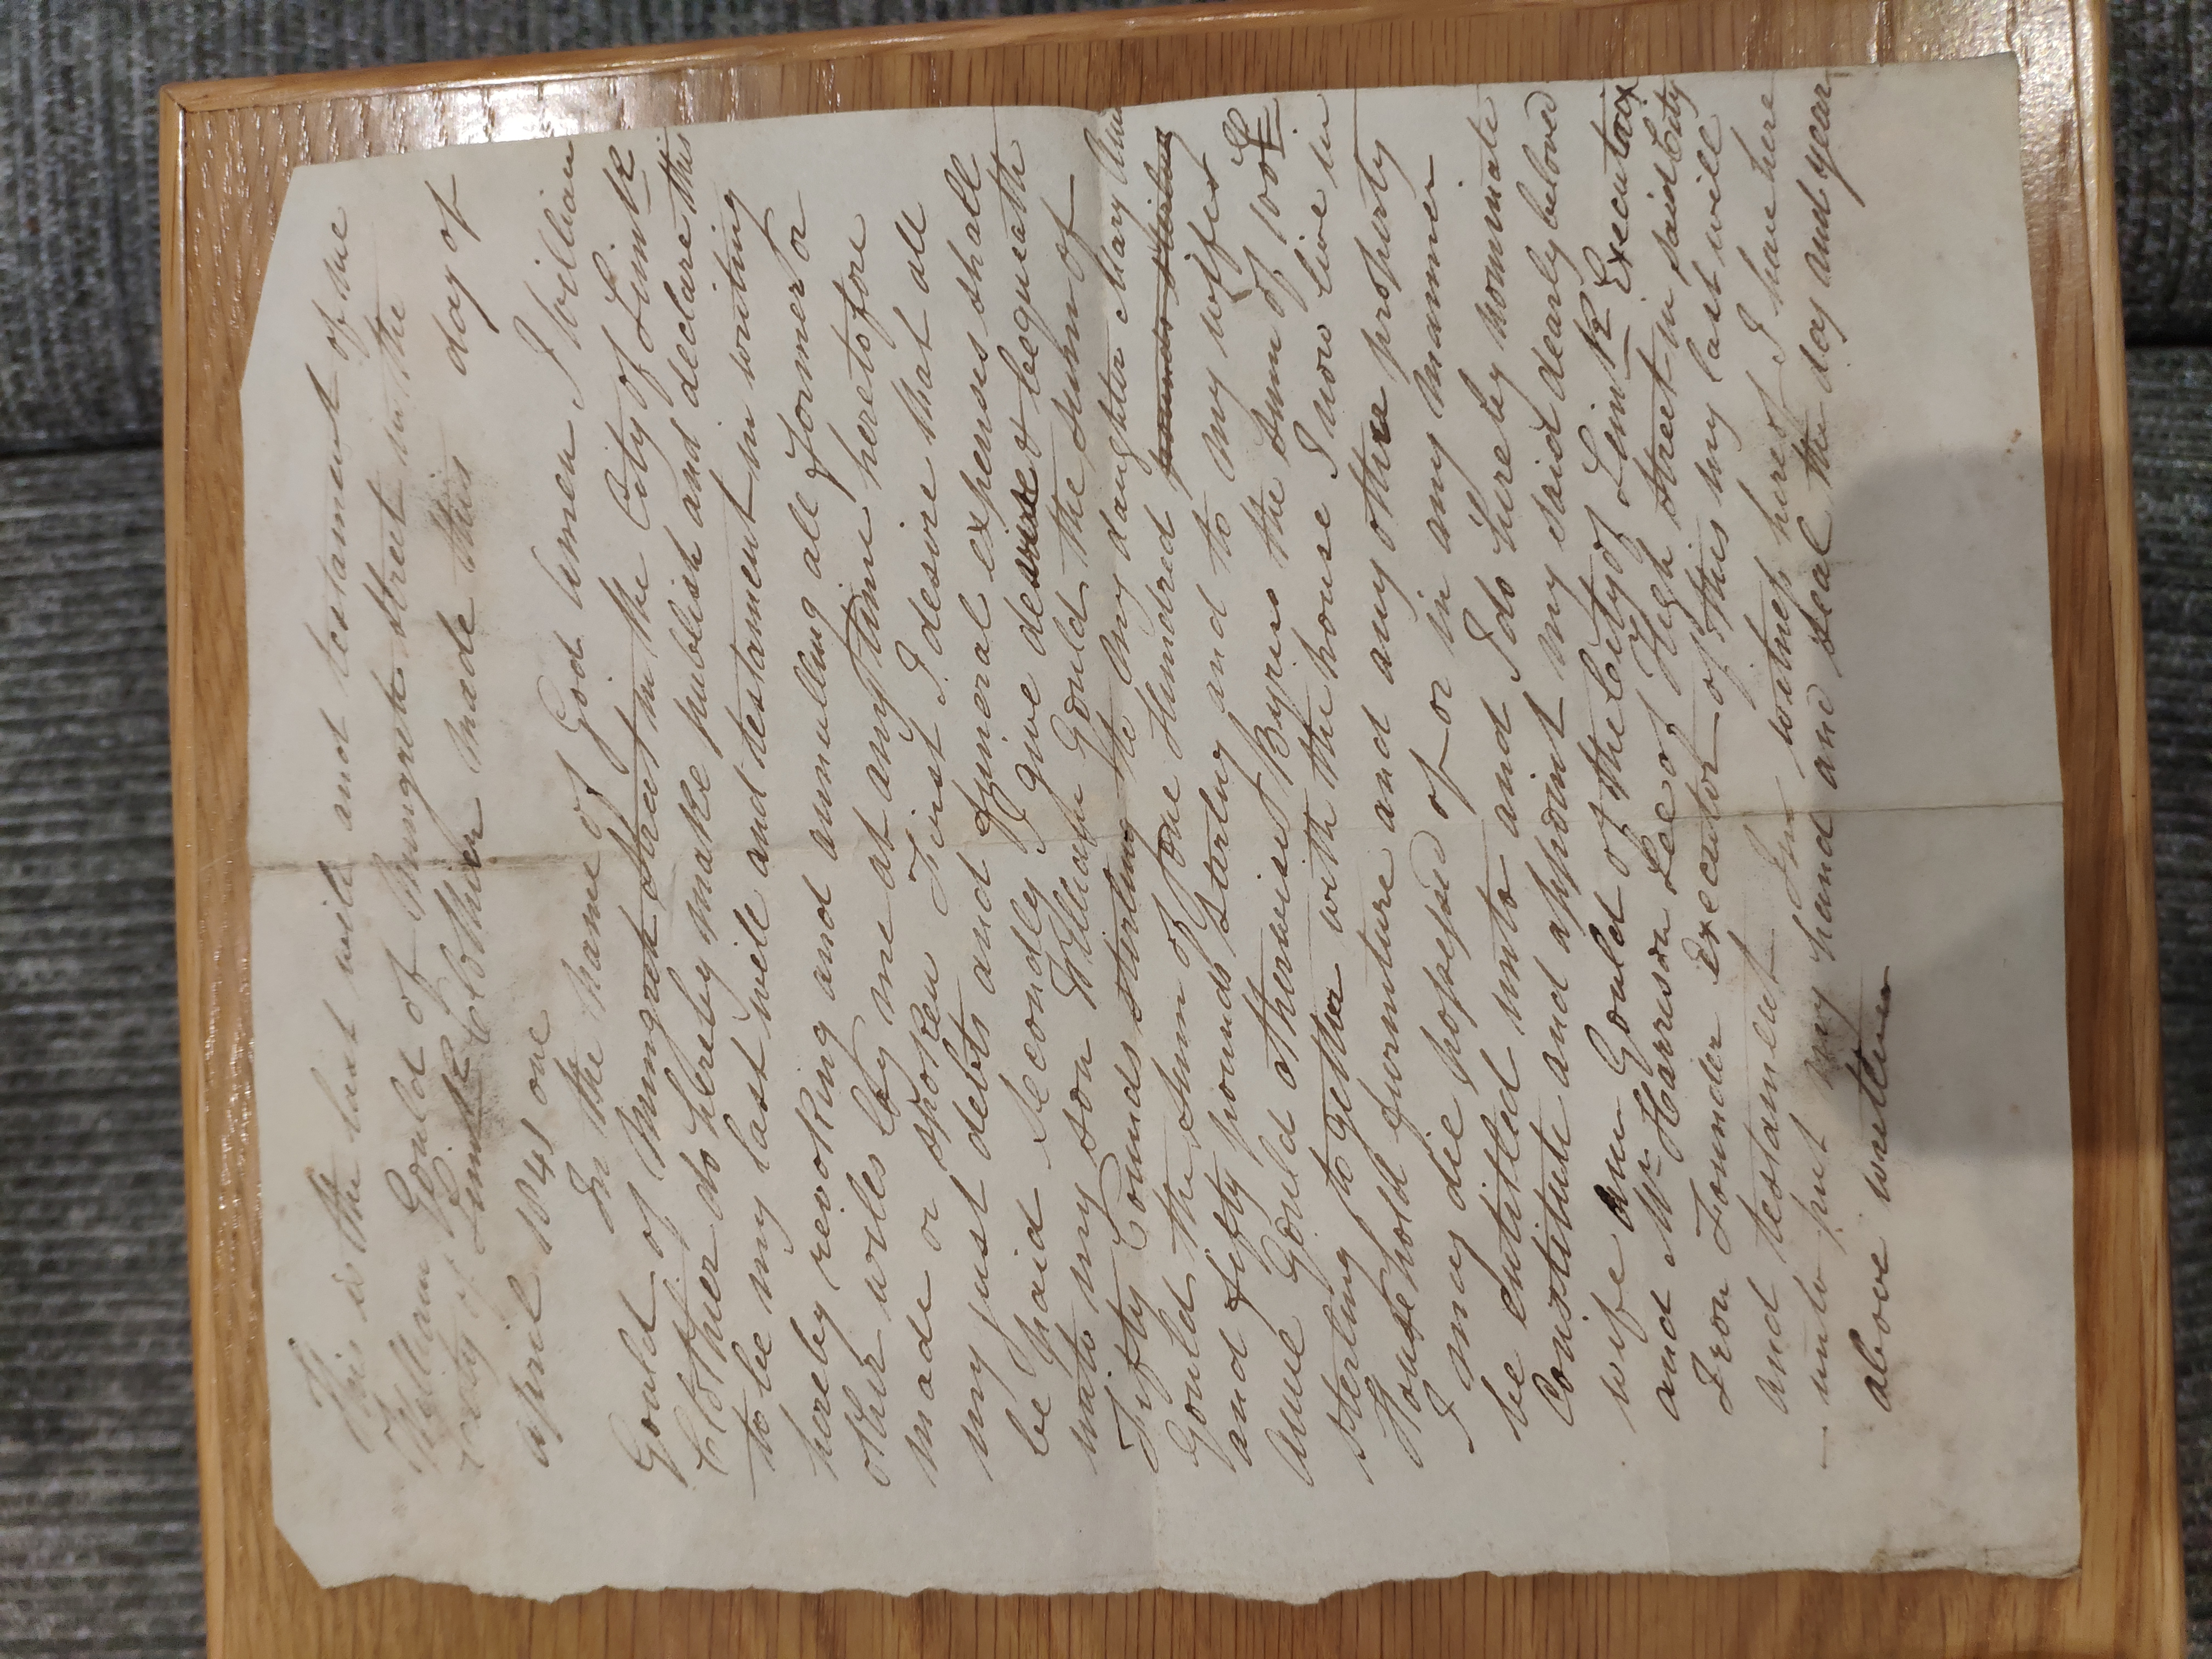 This is the last will and testament of me
William Gould of Mungret Street in the
City of Limk Clothier made this day of
april 1841 one
In the name of God Amen I William
Gould of Mungret Street in the City of Limk
Clothier do hereby make publish and declare this
to be my last will and testament in writing
hereby revoking and annulling all former or
other wills by me at any time heretofore
made or spoken First I desire that all
my just debts and funeral expenses shall
be paid Secondly I give desire & bequeath
unto my son William Gould the sum of
Fifty Pounds sterling to my daughter Mary Ann
Gould the sum of One Hundred pounds sterling
and fifty pounds Starling and to my wifes
Anne Gould otherwise Byrns the sum of 100£
sterling together with the house I now live in
Household furniture and any other property
I may die possessed of or in any manner
be entitled unto and I do hereby nominate
Constitute and appoint my said dearly beloved
wife Ann Gould of the City of Limk Executrix
and Mr Harrison Lee of High Street in said City
Iron Founder Executor of this my last will
and testament In witness hereof I have here
unto put my hand and seal the day and year
above written